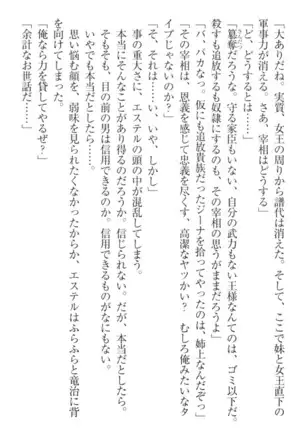 「大ありだね。実質、女王の周りから譜代は消えた。そして、ここで妹と女王直下の
軍事力が消える。さあ、宰相はどうする」
「ど、どうするとは……」
「簒奪だろうな。守る家臣もいない、自分の武力もない王様なんてのは、ゴミ以下だ。
殺すも追放するも奴隷にするのも、その宰相の思うがままだろうよ」
「バ、バカなっ。仮にも追放貴族だったジーナを拾ってやったのは、姉上なんだぞっ」
「で、その宰相は、恩義を感じて忠義を尽くす、高潔なヤツかい？　むしろ俺みたいなタ
イプじゃないのか？」
「そ、それは……い、いや、しかし」
事の重大さに、エステルの頭の中が混乱してしまう。
本当にそんなことがあり得るのだろうか。信じられない。だが、本当だとしたら。
そもそも、目の前の男は信用できるのか。信用できるものがなにもない。
いやでも本当だとしたら……。
思い悩む顔を、弱味を見られたくなかったからか、エステルはふらふらと竜治に背
を向けてしまった。
「俺なら力を貸してやるぜ？」
「余計なお世話だ……」